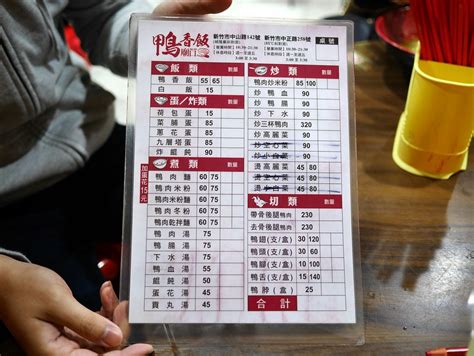 鴨香飯
廟口
新竹市中山路142號
新竹市中正路256號
桌號
飯類 數量
鴨香飯 55 65
白飯 15
蛋／炸類 數量
荷包蛋 20
菜脯蛋 90
蔥花蛋 90
九層塔蛋 90
炸餛飩 50
煮類 數量
加蛋花15元
鴨肉麵 60 75
鴨肉米粉 60 75
鴨肉冬粉 60 75
鴨肉乾拌麵 60 75
鴨肉湯 75
鴨腸湯 75
下水湯 55
鴨血湯 55
餛飩湯 50
蛋花湯 45
貢丸湯 45
炒類 數量
鴨肉炒米粉 85
炒鴨血 90
炒鴨腸
炒下水
炒三杯鴨肉
炒高麗菜
炒空心菜
燙高麗菜 45 80
燙空心菜 45 80
燙小白菜 45 80
切類 數量
帶骨後腿鴨肉 230
去骨後腿鴨肉 230
鴨翅(支/盒) 30 120
鴨頭(支/盒) 30 60
鴨腳(支/盒) 30 100
鴨舌(支/盒) 35 100
鴨脖(支/盒) 25
合計